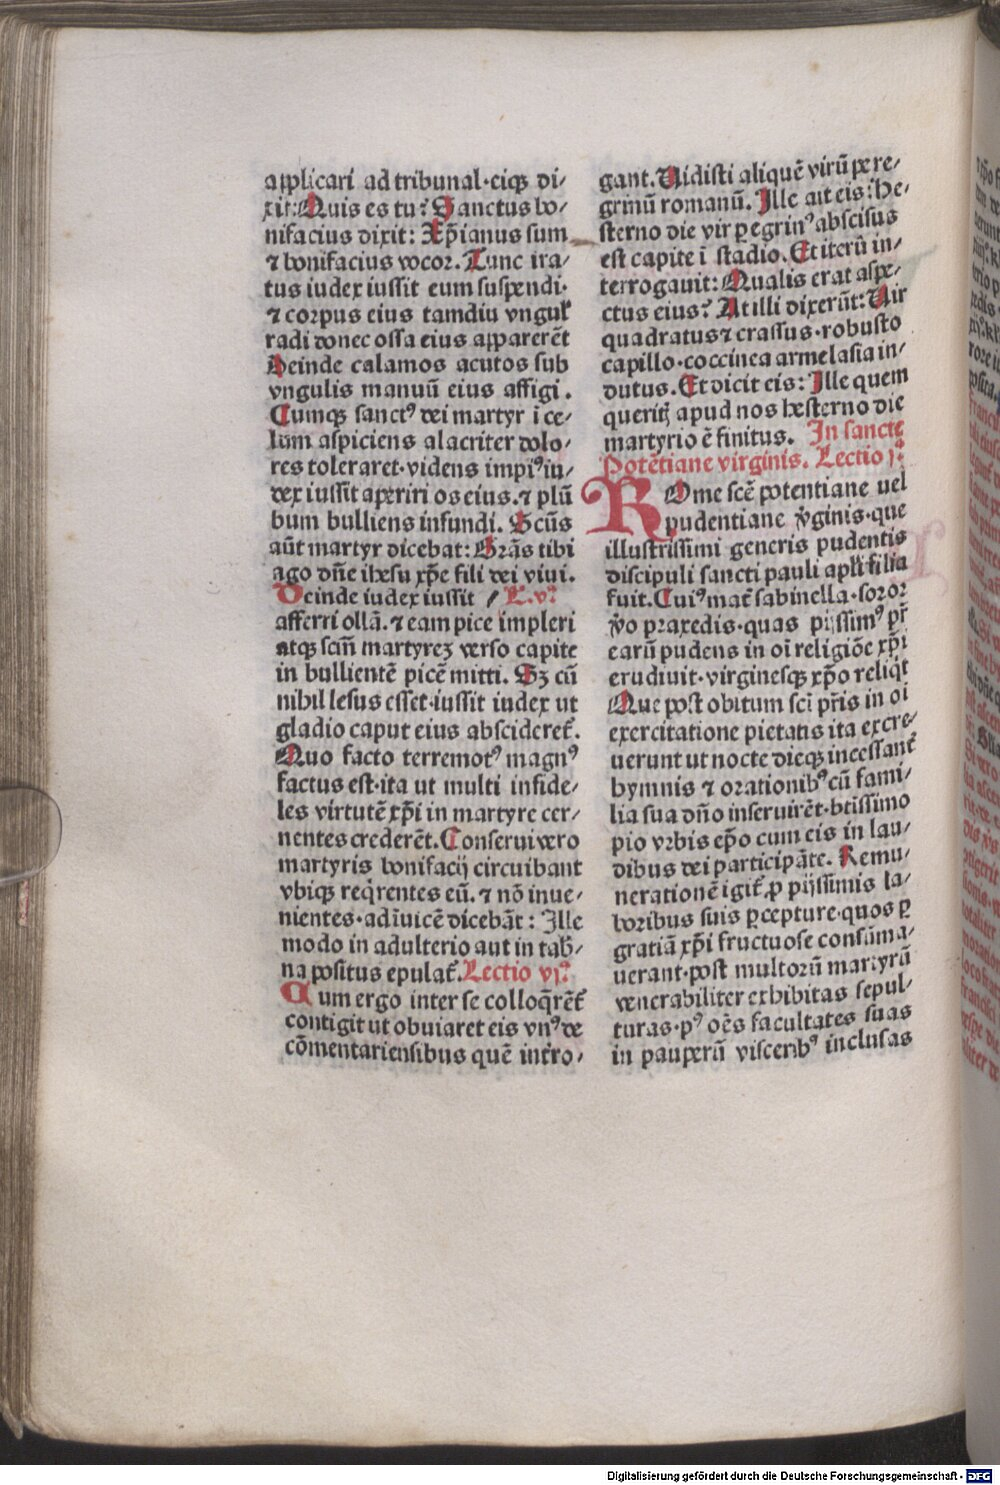 applicari ad tribunal·eiqꝫ di⸗
xit: Quis es tu? Sanctus bo⸗
nifacius dixit: Xp̄ianus sum
⁊ bonifacius vocor. Tunc ira⸗
tus iudex iussit eum suspendi·
⁊ corpus eius tamdiu vngul᷑
radi donec ossa eius apparerēt
Deinde calamos acutos sub
vngulis manuū eius affigi.
Cumqꝫ sanctꝰ dei martyr ī ce⸗
lum aspiciens alacriter dolo⸗
res toleraret·videns impiꝰ iu⸗
dex iussit aperiri os eius.⁊ plū
bum bulliens infundi. Scūs
aūt martyr dicebat: Grās tibi
ago dn̄e ihesu xp̄e fili dei viui.
Deinde iudex iussit / L.vꝰ
afferri ollā.⁊ eam pice impleri
atqꝫ scīm martyreꝫ verso capite
in bullientē picē mitti. Sꝫ cū
nihil lesus esset·iussit iudex ut
gladio caput eius abscideret᷑.
Quo facto terremotꝰ magnꝰ
factus est·ita ut multi infide⸗
les virtutē xp̄i in martyre cer⸗
nentes crederēt. Conserui vero
martyris bonifacij circuibant
vbiqꝫ reqͥrentes eū. ⁊ nō inue⸗
nientes·adīuicē dicebāt: Ille
modo in adulterio aut in tab̄⸗
na positus epulat᷑. Lectio vjꝰ
Cum ergo inter se colloqͥrēt᷑
contigit ut obuiaret eis vnꝰ de
cōmentariensibus quē int̓ro⸗
gant. Vidisti aliquē virū pere⸗
grinū romanū. Ille ait eis: he⸗
sterno die vir ꝑegrinꝰ abscisus
est capite ī stadio. Et iterū in⸗
terrogauit: Qualis erat aspe⸗
ctus eius? At illi dixerūt: Vir
quadratus ⁊ crassus·robusto
capillo·coccinea armelasia in⸗
dutus. Et dicit eis: Ille quem
queritꝭ apud nos hesterno die
martyrio ē finitus. In sancte
Potētiane virginis. Lectio jꝰ
ROme scē potentiane uel
pudentiane v̓ginis·que
illustrissimi generis pudentis
discipuli sancti pauli apl̄i filia
fuit. Cuiꝰ mat̄ sabinella·soror
v̓o praxedis·quas pijssimꝰ pr̄
earū pudens in oī religiōe xp̄i
erudiuit·virginesqꝫ xp̄o reliqͥt
Que post obitum scī pr̄is in oī
exercitatione pietatis ita excre⸗
uerunt ut nocte dieqꝫ incessant᷑
hymnis ⁊ orationibꝰ cū fami⸗
lia sua dn̄o inseruirēt·btīssimo
pio vrbis ep̄o cum eis in lau⸗
dibus dei participāte. Remu⸗
nerationē igit᷑ ꝓ pijssimis la⸗
boribus suis ꝑcepture·quos ꝑ
gratiā xp̄i fructuose consūma⸗
uerant·post multorū martyrū
venerabiliter exhibitas sepul⸗
turas·pꝰ oēs facultates suas
in pauperū viscerībꝰ inclusas
Digitalisierung gefördert durch die Deutsche Forschungsgemeinschaft - DFG